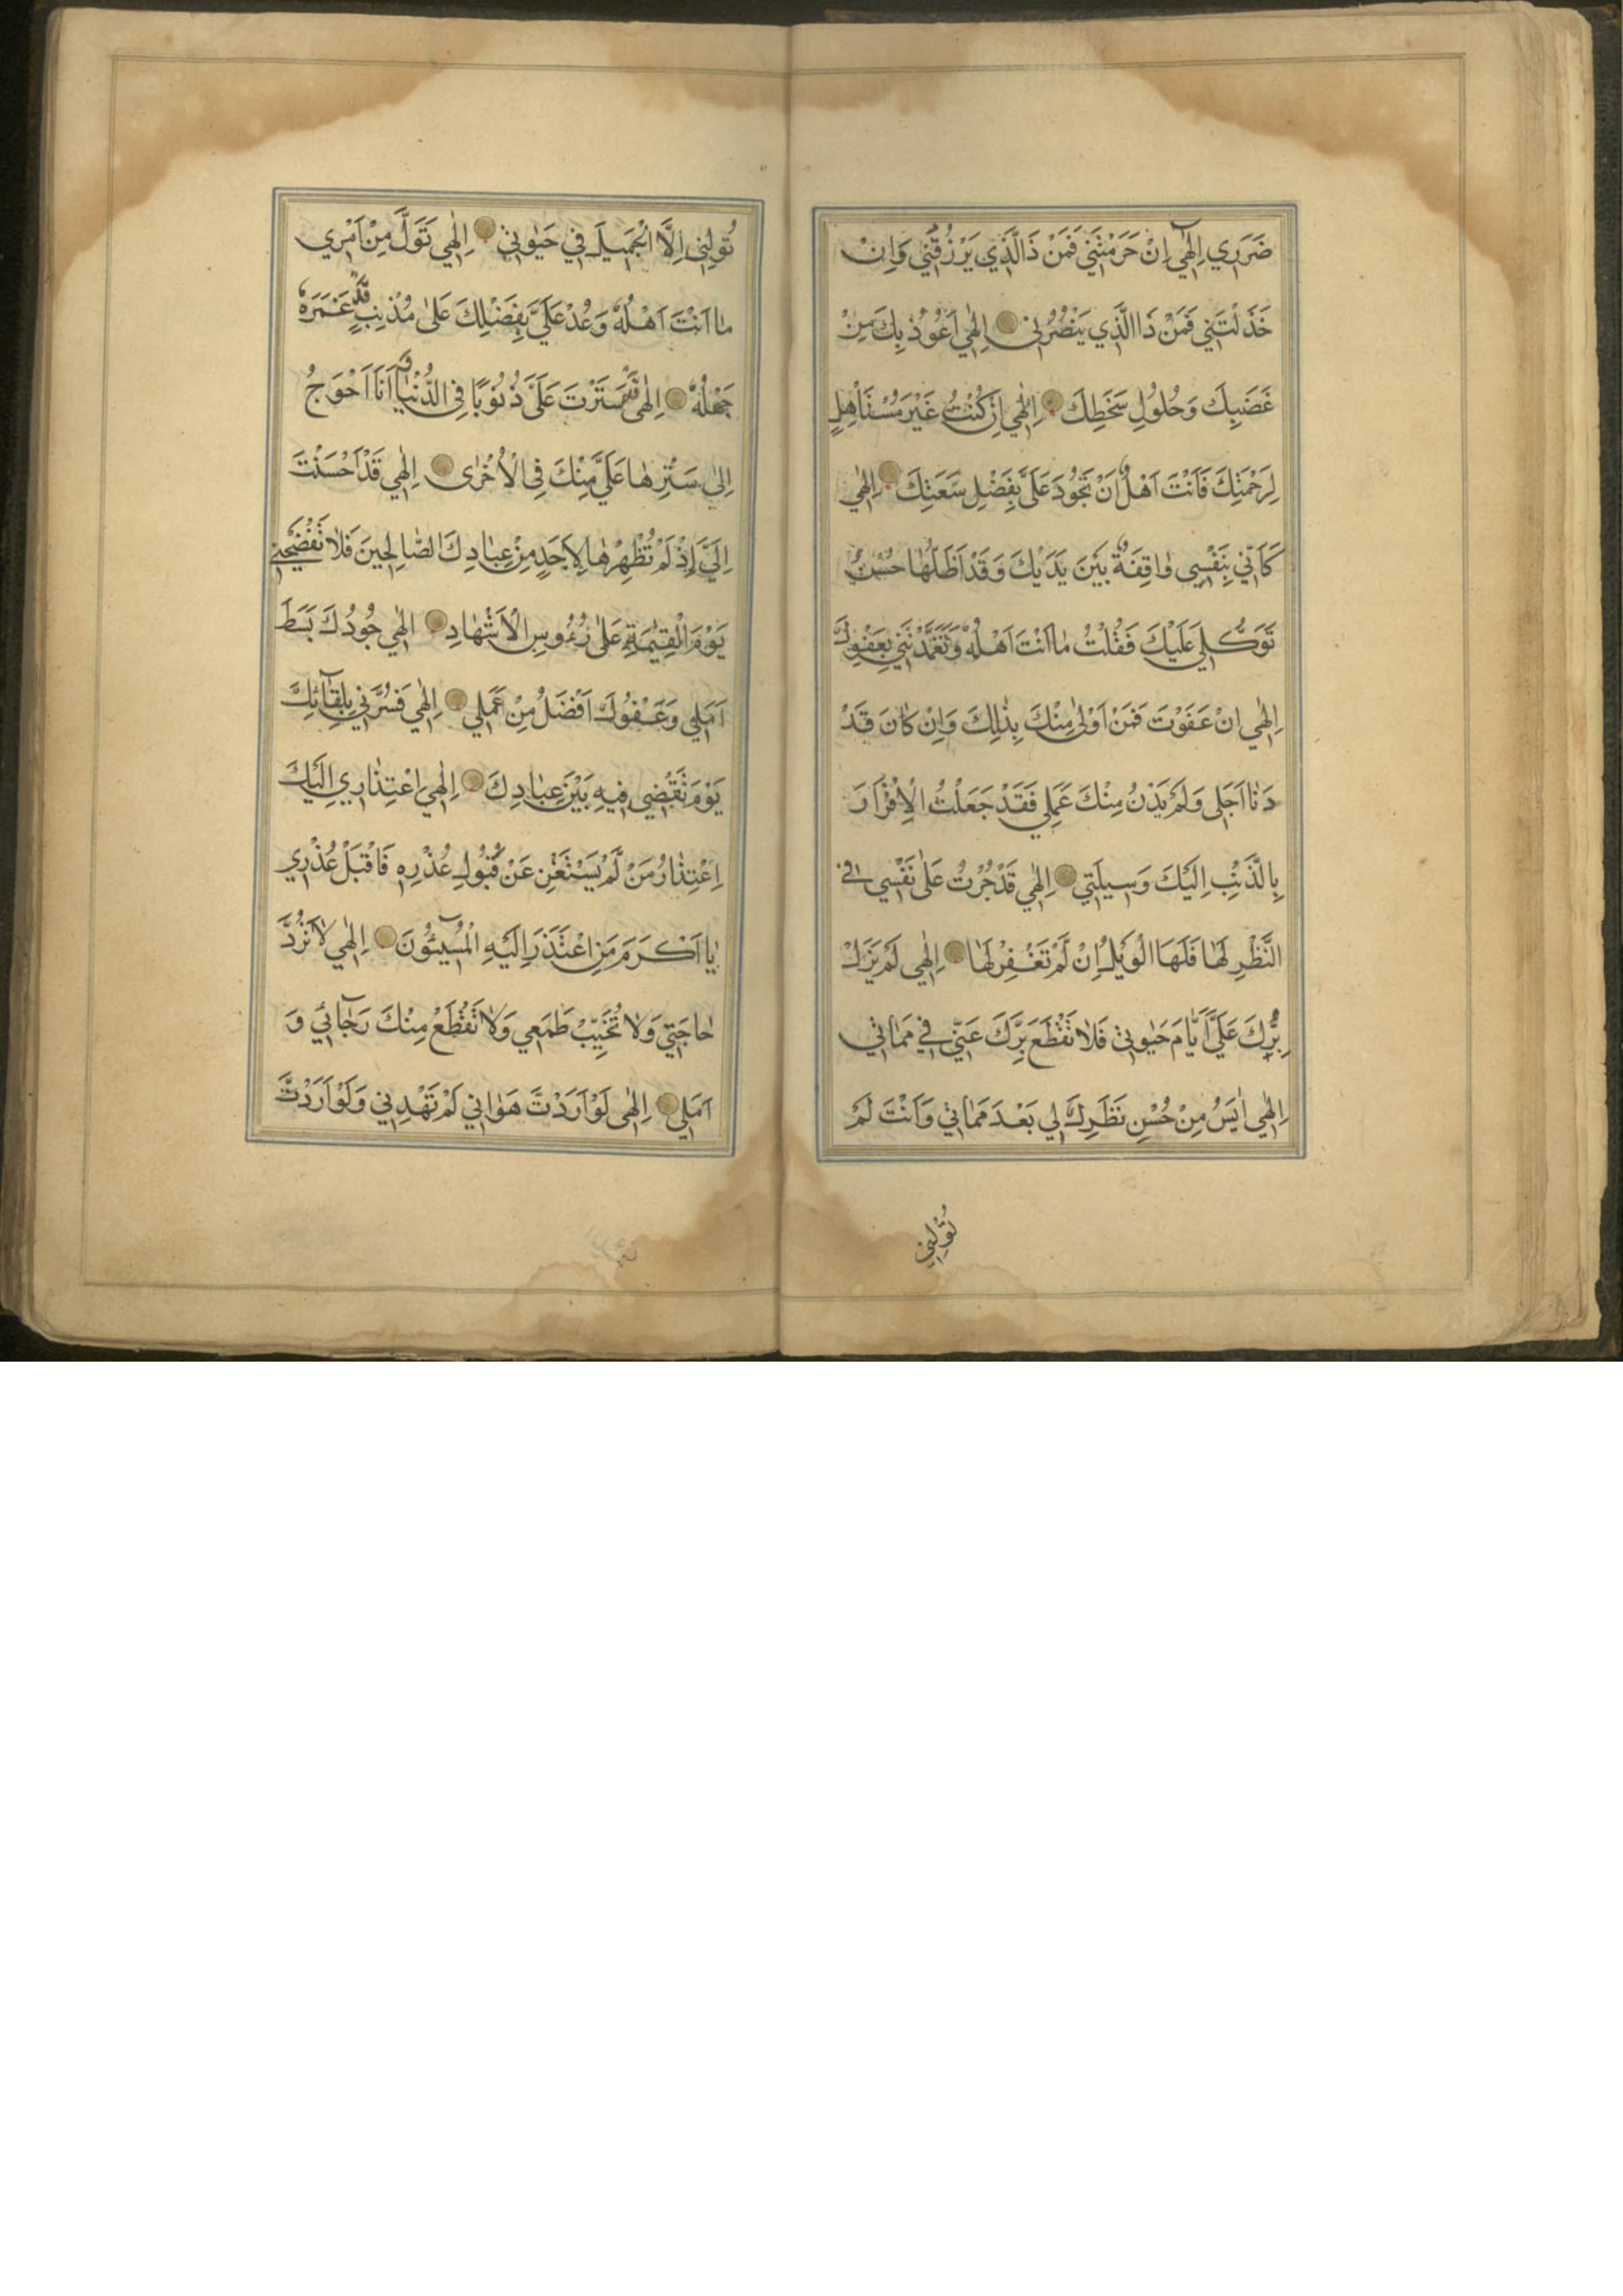 ضَرَرِي اِلٰهٓي اِنْ حَرَمْتَنِي فَمَنْ ذَالَّذِي يَرْزُقُنِي وَاِنْ
خَذَلْتَنِي فَمَنْ ذَا الَّذِي يَنْصُرُنِي اِلٰهِي اَعُوذُ بِكَ مِنْ
غَضَبِكَ وَحُلُولِ سَخَطِكَ اِلٰهِي اِنْ كُنْتُ غَيْرَ مُسْتَأْهِلٍ
لِرَحْمَتِكَ فَاَنْتَ اَهْلٌ اَنْ تَجُودَ عَلَيَّ بِفَضْلِ سَعَتِكَ اِلٰهِي
كَاَنِّي بِنَفْسِي وٰاقِفَةٌ بَيْنَ يَدَيْكَ وَقَدْ اَظَلَّهٰا حُسْنُ
تَوَكُّلِي عَلَيْكَ فَقُلْتَ مٰا اَنْتَ اَهْلُهُ وَتَغَمَّدْتَنِي بِعَفْوِكَ
اِلٰهِي اِنْ عَفَوْتَ فَمَنْ اَوْلىٰ مِنْكَ بِذٰلِكَ وَاِنْ كٰانَ قَدْ
دَنٰا اَجَلِي وَلَمْ يَدْنُ مِنْكَ عَمَلِي فَقَدْ جَعَلْتُ الْاِقْرٰارَ
بِالذَّنْبِ اِلَيْكَ وَسِيلَتِي اِلٰهِي قَدْ جُرْتُ عَلىٰ نَفْسِي فِي
النَّظَرِ لَهٰا فَلَهَا الْوَيْلُ اِنْ لَمْ تَغْفِرْ لَهٰا اِلٰهِي لَمْ يَزَلْ
بِرُّكَ عَلَيَّ اَيَّامَ حَيٰوتِي فَلاٰ تَقْطَعْ بِرَّكَ عَنِّي فِي مَمٰاتِي
اِلٰهِي اٰيَسُ مِنْ حُسْنِ نَظَرِكَ لِي بَعْدَ مَمٰاتِي وَاَنْتَ لَمْ
تُوَلِّنِي
تُوَلِّنِي اِلَّا الْجَمِيلَ فِي حَيٰوتِي اِلٰهِي تَوَلَّ مِنْ اَمْرِي
مٰا اَنْتَ اَهْلُهُ وَعُدْ عَلَيَّ بِفَضْلِكَ عَلىٰ مُذْنِبٍ قَدْ غَمَرَهُ
جَهْلُهُ اِلٰهِي قَدْ سَتَرْتَ عَلَيَّ ذُنُوبًا فِي الدُّنْيٰا وَاَنَا اَحْوَجُ
اِلىٰ سَتْرِهٰا عَلَيَّ مِنْكَ فِي الْاُخْرٰى اِلٰهِي قَدْ اَحْسَنْتَ
اِلَيَّ اِذْ لَمْ تُظْهِرْهٰا لِاَحَدٍ مِنْ عِبٰادِكَ الصّٰالِحِينَ فَلاٰ تَفْضَحْنِي
يَوْمَ الْقِيٰمَةِ عَلىٰ رُءُوسِ الْاَشْهٰادِ اِلٰهِي جُودُكَ بَسَطَ
اَمَلِي وَعَفْوُكَ اَفْضَلُ مِنْ عَمَلِي اِلٰهِي فَسُرَّنِي بِلِقٰآئِكَ
يَوْمَ تَقْضِي فِيهِ بَيْنَ عِبٰادِكَ اِلٰهِي اِعْتِذٰارِي اِلَيْكَ
اِعْتِذٰارُ مَنْ لَمْ يَسْتَغْنِ عَنْ قَبُولِ عُذْرِهِ فَاقْبَلْ عُذْرِي
يٰا اَكْرَمَ مَنِ اعْتَذَرَ اِلَيْهِ الْمُسِيٓئُونَ اِلٰهِي لاٰ تَرُدَّ
حٰاجَتِي وَلاٰ تُخَيِّبْ طَمَعِي وَلاٰ تَقْطَعْ مِنْكَ رَجٰآئِي وَ
اَمَلِي اِلٰهِي لَوْ اَرَدْتَ هَوٰانِي لَمْ تَهْدِنِي وَلَوْ اَرَدْتَ